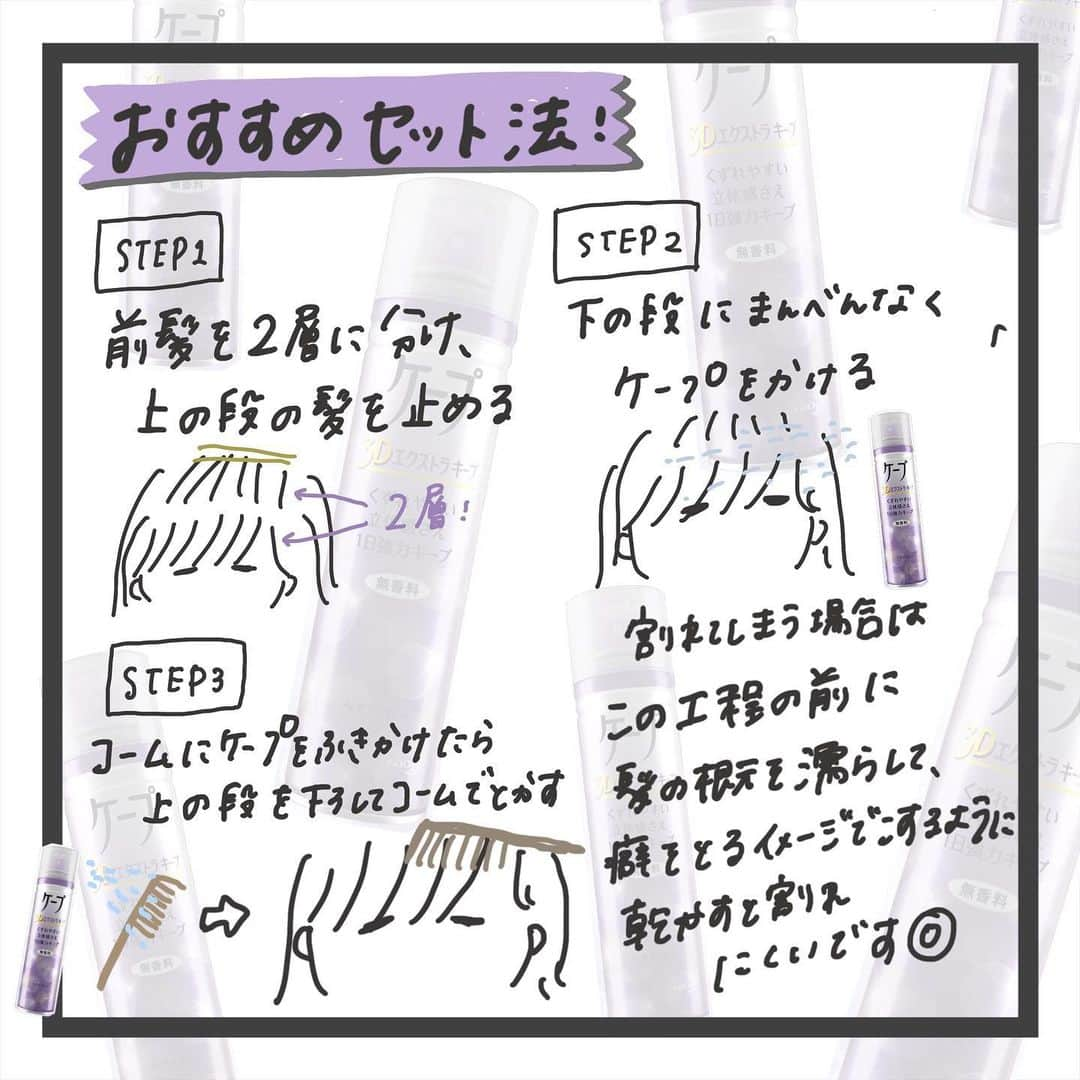 おすすめセット法!
STEP1
前髪を2層に分け、
上の段の髪を止める
2層!
STEP2
下の段にまんべんなく
ケープをかける
ケープ
3Dエクストラキープ
くずれやすい
立体感さえ
1日強力キープ
無香料
割れてしまう場合は
この工程の前に
髪の根元を濡らして、
癖をとるイメージでこするように
乾かすと割れ
にくいです◎
STEP3
コームにケープをふきかけたら
上の段を下ろしてコームでとかす
ケープ
3Dエクストラキープ
くずれやすい
立体感さえ
1日強力キープ
無香料